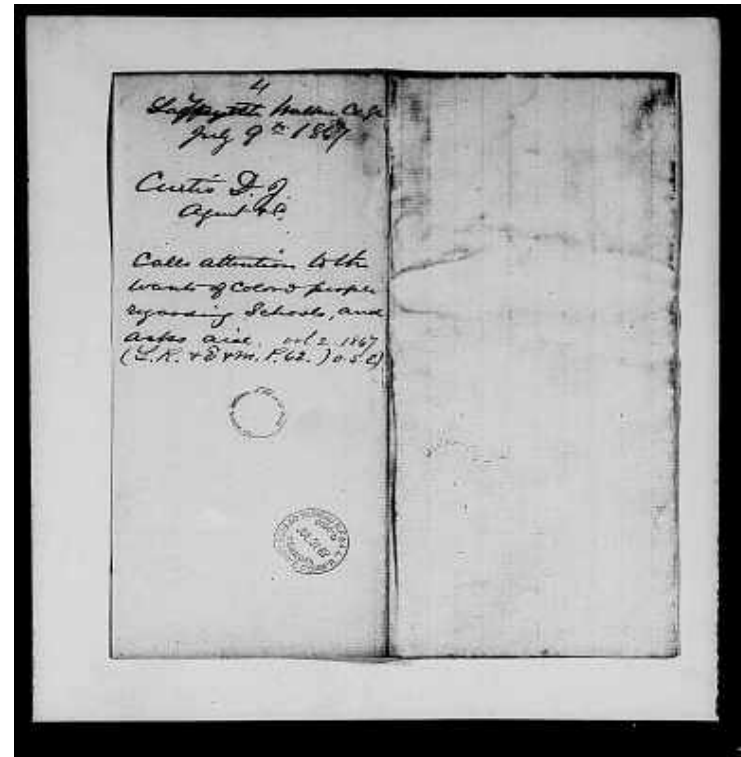 4
Laffayette Walker Co Ga
July 9th 1867
Curtis D. J.
Agent &c.
Calls attention to the
wants of Colord people
regarding Schools, and
asks aid. vol 2 1867
(L.R. & E & M. P. 62.) O.S.C)